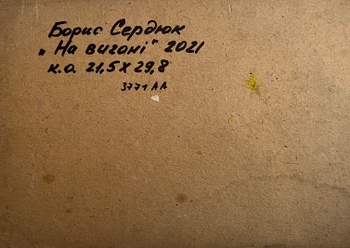 Борис Сердюк
„На вигоні" 2021
к.о. 21,5 х 29,8
3771 А.А